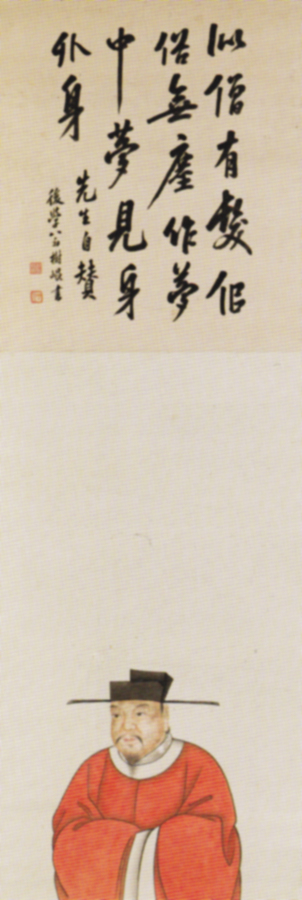 似僧有髮似
俗無塵作夢
中夢見身
外身
先生自贊
後學樹書